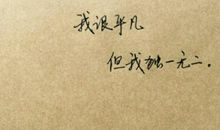 我很平凡
但我独一无二.